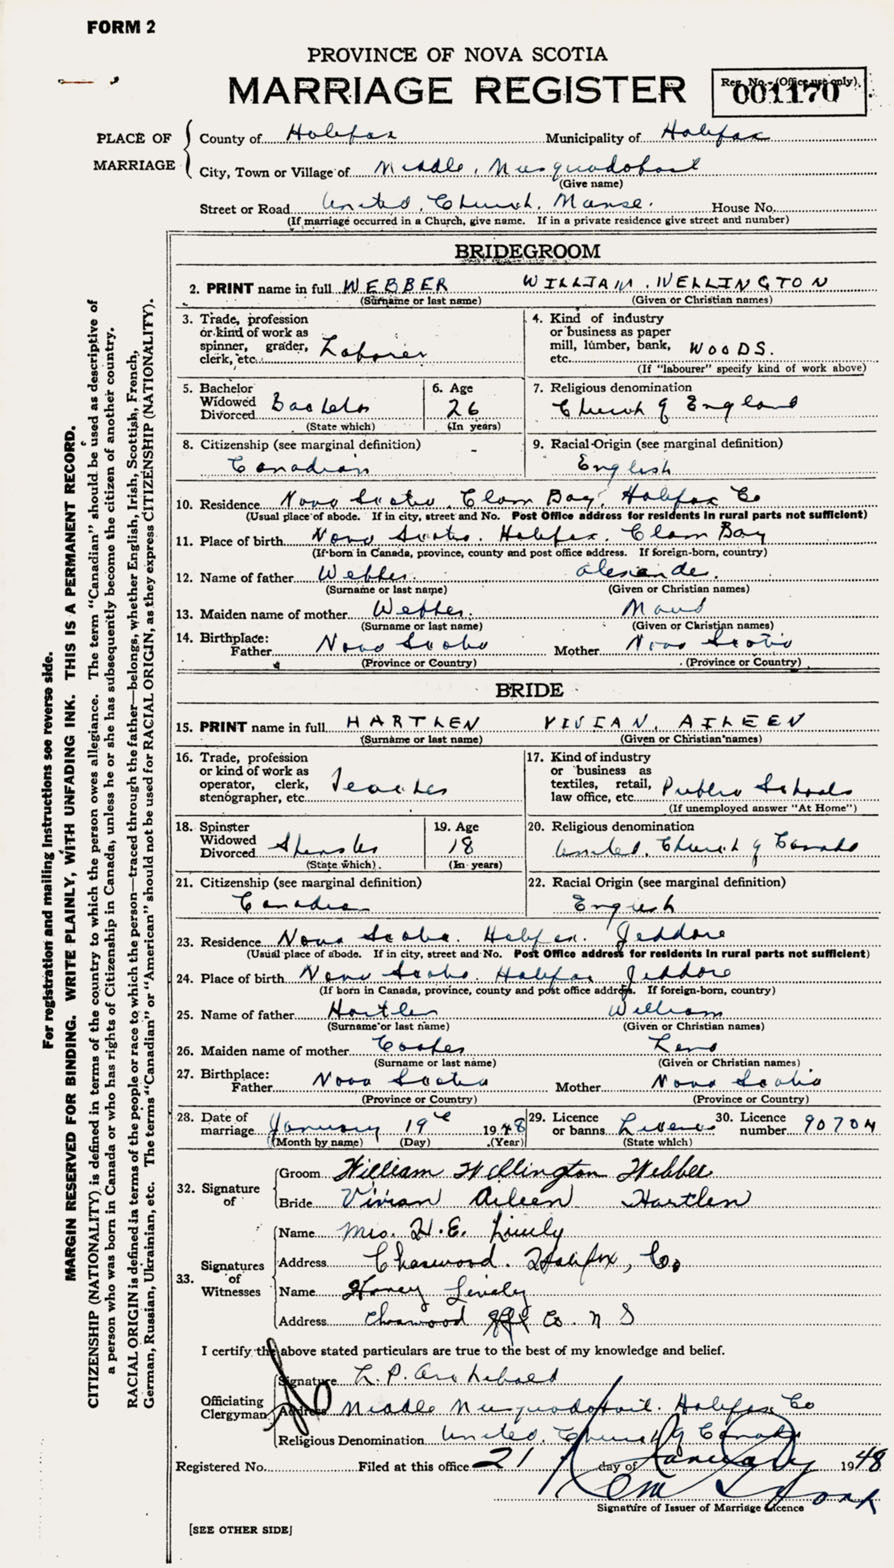 FORM 2
PROVINCE OF NOVA SCOTIA
MARRIAGE REGISTER
Reg. No. (Office use only)
001170
PLACE OF MARRIAGE
County of Halifax Municipality of Halifax
City, Town or Village of Middle Musquodoboit
(Give name)
Street or Road United Church Manse. House No.
(If marriage occurred in a Church, give name. If in a private residence give street and number)
BRIDEGROOM
2. PRINT name in full WEBBER WILLIAM WELLINGTON
(Surname or last name) (Given or Christian names)
3. Trade, profession or kind of work as spinner, grader, clerk, etc. Laborer
4. Kind of industry or business as paper mill, lumber, bank, etc. WOODS.
(If "labourer" specify kind of work above)
5. Bachelor Widowed Divorced Bachelor
(State which)
6. Age 26
(In years)
7. Religious denomination
Church of England
8. Citizenship (see marginal definition)
Canadian
9. Racial Origin (see marginal definition)
English
10. Residence Nova Scotia, Clam Bay, Halifax Co
(Usual place of abode. If in city, street and No. Post Office address for residents in rural parts not sufficient)
11. Place of birth Nova Scotia. Halifax. Clam Bay
(If born in Canada, province, county and post office address. If foreign-born, country)
12. Name of father Webber. Alexander.
(Surname or last name) (Given or Christian names)
13. Maiden name of mother Webber. Maud
(Surname or last name) (Given or Christian names)
14. Birthplace:
Father Nova Scotia Mother Nova Scotia
(Province or Country) (Province or Country)
BRIDE
15. PRINT name in full HARTLEN VIVIAN, AILEEN
(Surname or last name) (Given or Christian names)
16. Trade, profession or kind of work as operator, clerk, stenographer, etc. Teacher
17. Kind of industry or business as textiles, retail, law office, etc. Public Schools
(If unemployed answer "At Home")
18. Spinster Widowed Divorced Spinster
(State which)
19. Age 18
(In years)
20. Religious denomination
United Church of Canada
21. Citizenship (see marginal definition)
Canadian
22. Racial Origin (see marginal definition)
English
23. Residence Nova Scotia. Halifax. Jeddore
(Usual place of abode. If in city, street and No. Post Office address for residents in rural parts not sufficient)
24. Place of birth Nova Scotia. Halifax Jeddore
(If born in Canada, province, county and post office address. If foreign-born, country)
25. Name of father Hartlen William
(Surname or last name) (Given or Christian names)
26. Maiden name of mother Cooper Lena
(Surname or last name) (Given or Christian names)
27. Birthplace:
Father Nova Scotia Mother Nova Scotia
(Province or Country) (Province or Country)
28. Date of marriage January 19th 1948
(Month by name) (Day) (Year)
29. Licence or banns License
(State which)
30. Licence number 90704
32. Signature of
Groom William Wellington Webber
Bride Vivian Aileen Hartlen
33. Signatures of Witnesses
Name Mrs. H. E. Lively
Address Chaswood. Halifax, Co.
Name Harvey Lively
Address Chaswood Co. N S
I certify the above stated particulars are true to the best of my knowledge and belief.
Officiating Clergyman
Signature L. P. Archibald
Address Middle Musquodoboit. Halifax Co
Religious Denomination United Church of Canada
Registered No. Filed at this office 21 day of January 1948
Signature of Issuer of Marriage Licence
[SEE OTHER SIDE]
For registration and mailing instructions see reverse side.
MARGIN RESERVED FOR BINDING. WRITE PLAINLY, WITH UNFADING INK. THIS IS A PERMANENT RECORD.
CITIZENSHIP (NATIONALITY) is defined in terms of the country to which the person owes allegiance. The term "Canadian" should be used as descriptive of
a person who was born in Canada or who has rights of Citizenship in Canada, unless he or she has subsequently become the citizen of another country.
RACIAL ORIGIN is defined in terms of the people or race to which the person—traced through the father—belongs, whether English, Irish, Scottish, French,
German, Russian, Ukrainian, etc. The terms "Canadian" or "American" should not be used for RACIAL ORIGIN, as they express CITIZENSHIP (NATIONALITY).